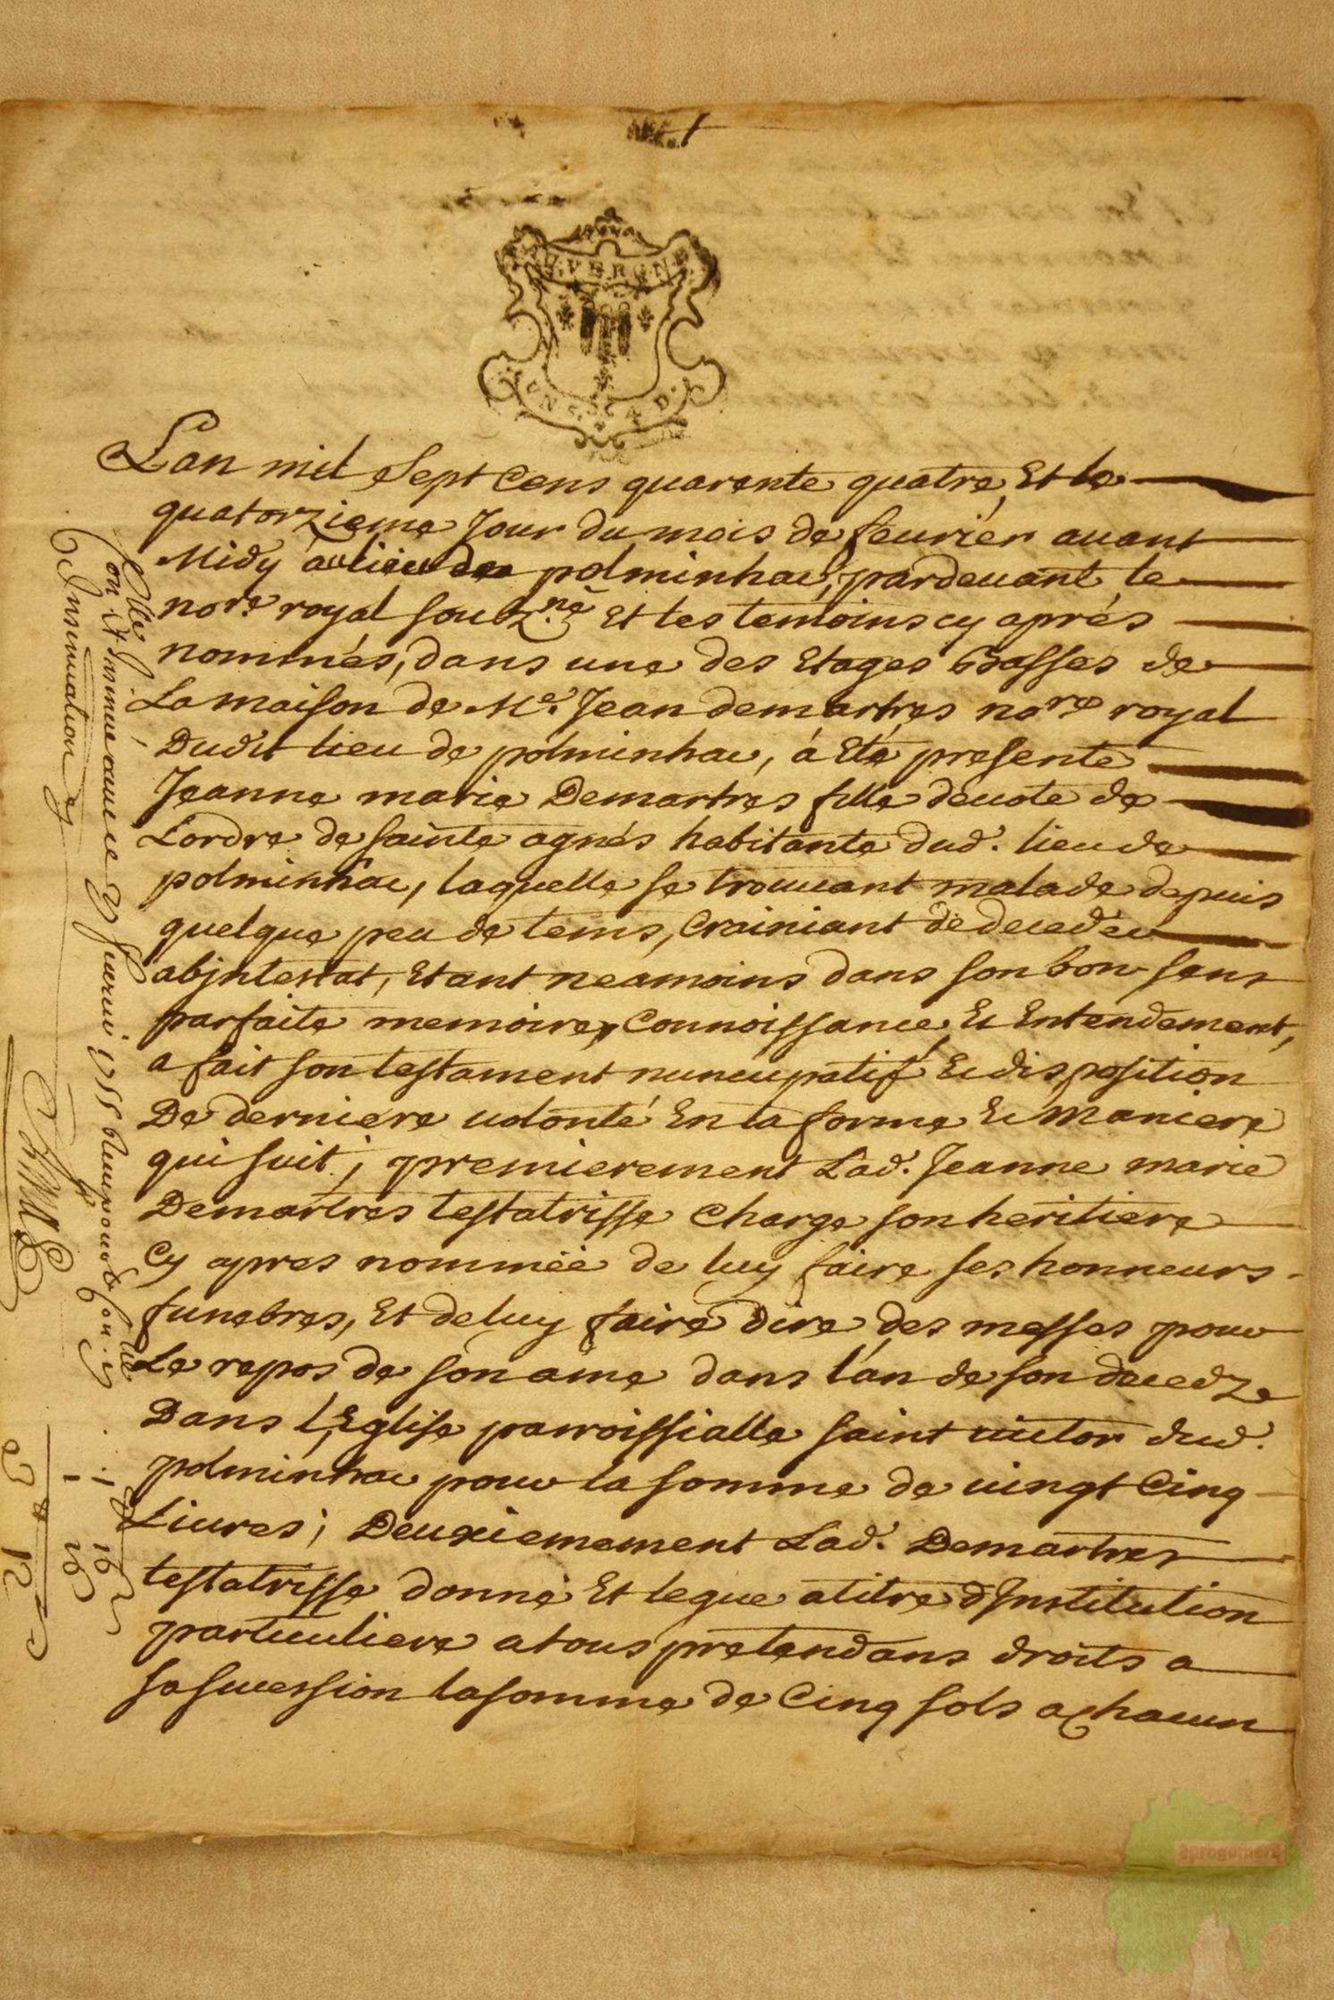 AUVERGNE
UN S. 4 D.
L'an mil sept cens quarante quatre, Et le
quatorzieme Jour du mois de feurier auant
Midy au lieu de polminhac, pardeuant le
nore. royal soubz.né Et les temoins cy aprés
nommés, dans une des Etages basses de
La maison de Me. Jean demartres nore royal
Dudit lieu de polminhac, á Eté presente
Jeanne marie Demartres fille deuote de
L'ordre de sainte agnés habitante dud. lieu de
polminhac, laquelle se trouuant malade depuis
quelque peu de tems, Crainiant de deceder
abjntestat, Etant neamoins dans son bon sens
parfaite memoire, Connoissance, Et Entendement,
a fait son testament nuncupatif Et disposition
De derniere uolonté En la forme Et Maniere
qui suit; premierement Lad. Jeanne marie
Demartres testatrisse Charge son heritiere
Cy apres nommée de luy faire ses honneurs
funebres, Et de luy faire dire des messes pour
Le repos de son ame dans l'an de son decedze
Dans l'Eglise parroissialle saint uictor dud.
polminhac pour la somme de uingt Cinq
Liures; Deuxiemement Lad. Demartres
testatrisse donne Et legue a titre d'Institution
particuliere a tous pretendans droits a
sa sucession la somme de Cinq sols a Chacun
Insinuation
aprogemere